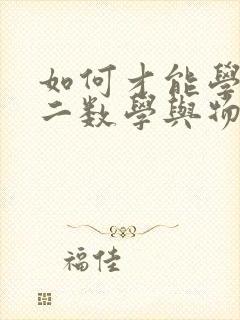 如何才能學
二数學與物
福佳